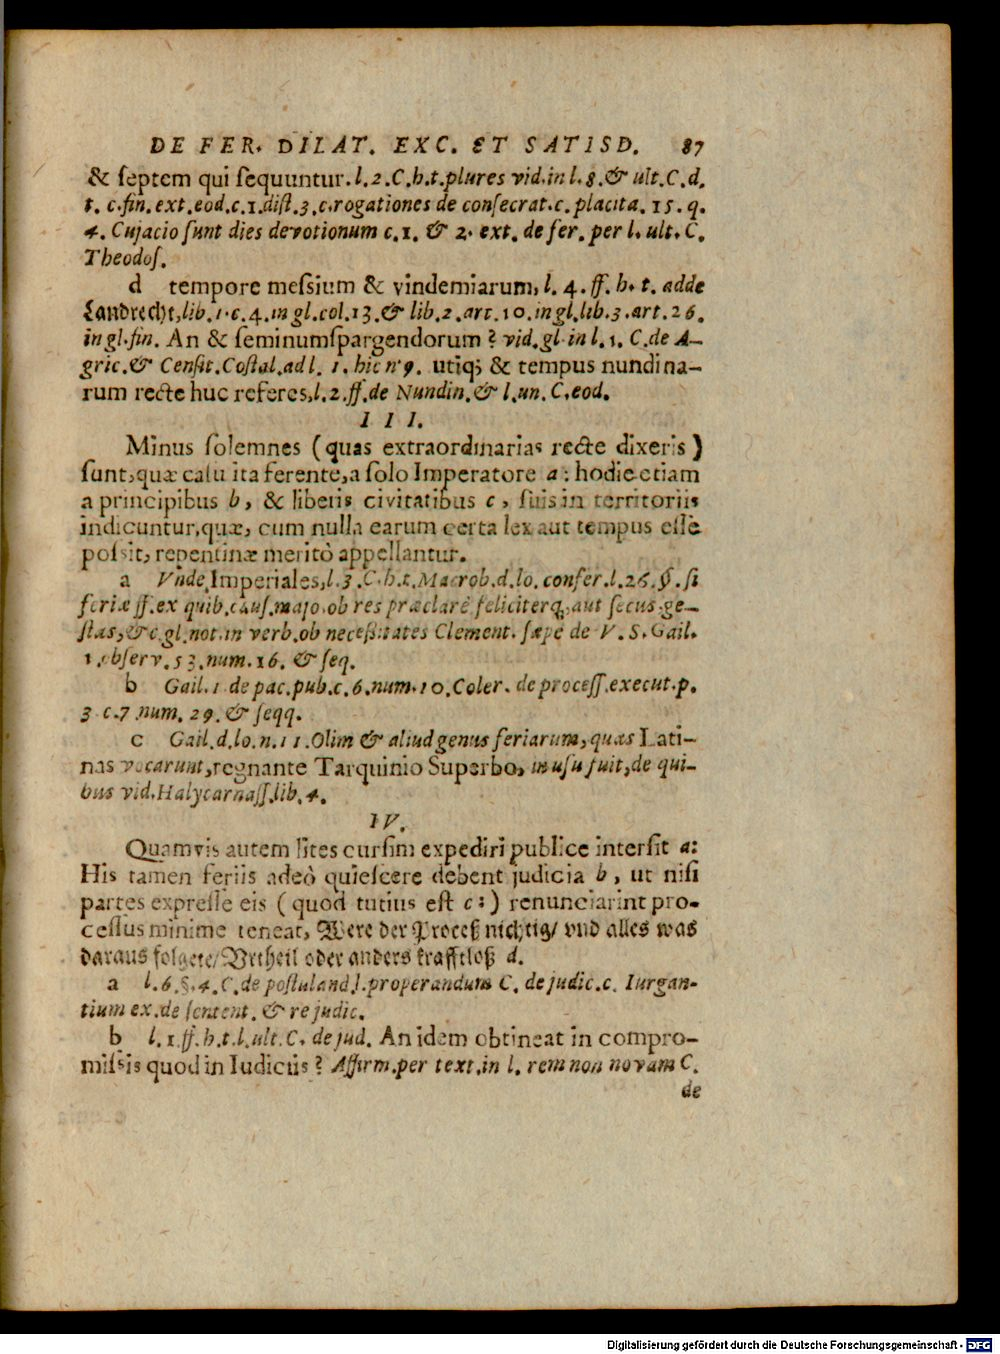 DE FER. DILAT. EXC. ET SATISD. 87
& ſeptem qui ſequuntur. l. 2. C. h. t. plures vid. in l. 8. & ult. C. d.
t. c. fin. ext. eod. c. 1. diſt. 3. c. rogationes de conſecrat. c. placita. 15. q.
4. Cujacio ſunt dies devotionum c. 1. & 2. ext. de fer. per l. ult. C.
Theodoſ.
d tempore meſsium & vindemiarum, l. 4. ff. h. t. adde
Landrecht, lib. 1. c. 4. in gl. col. 13. & lib. 2. art. 10. in gl. lib. 3. art. 26.
in gl. fin. An & ſeminumſpargendorum? vid. gl. in l. 1. C. de A-
gric. & Cenſit. Coſtal. ad l. 1. hic n. 9. utiq; & tempus nundina-
rum recte huc referes, l. 2. ff. de Nundin. & l. un. C. eod.
III.
Minus ſolemnes (quas extraordinarias recte dixeris)
ſunt, quæ caſu ita ferente, a ſolo Imperatore a: hodie etiam
a principibus b, & liberis civitatibus c, ſuis in territoriis
indicuntur, quæ, cum nulla earum certa lex aut tempus eſſe
poſsit, repentinæ meritò appellantur.
a Vnde Imperiales, l. 3. C. h. t. Macrob. d. lo. confer. l. 26. §. ſi
feriæ ff. ex quib. cauſ. majo. ob res præclarè feliciterq; aut ſecus ge-
ſtas, &c. gl. not. in verb. ob neceſſitates Clement. ſæpe de V. S. Gail.
1. obſerv. 53. num. 16. & ſeq.
b Gail. 1 de pac. pub. c. 6. num. 10. Coler. de proceſſ. execut. p.
3 c. 7 num. 29. & ſeqq.
c Gail. d. lo. n. 11. Olim & aliud genus feriarum, quas Lati-
nas vocarunt, regnante Tarquinio Superbo, in uſu fuit, de qui-
bus vid. Halycarnaſſ. lib. 4.
IV.
Quamvis autem lites curſim expediri publice interſit a:
His tamen feriis adeò quieſcere debent judicia b, ut niſi
partes expreſſè eis (quod tutius eſt c:) renunciarint pro-
ceſſus minime teneat, Were der Proceß nichtig/ vnd alles was
daraus folgete/ Vrtheil oder anders krafftloß d.
a l. 6. §. 4. C. de poſtuland. l. properandum C. de judic. c. Iurgan-
tium ex. de ſentent. & re judic.
b l. 1. ff. h. t. l. ult. C. de jud. An idem obtineat in compro-
miſsis quod in Iudiciis? Affirm. per text. in l. rem non novam C.
de
Digitalisierung gefördert durch die Deutsche Forschungsgemeinschaft - DFG